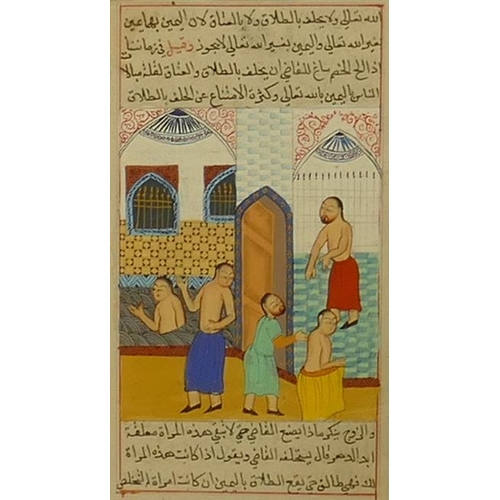 الله تعالي ولا يحلف بالطلاق ولا بالعتاق لان اليمين بهما يمين
بغير الله تعالي واليمين بغير الله تعالي لا يجوز وقيل في زماننا
اذا الح الخصم ساغ للقاضي ان يحلف بالطلاق والعتاق لقلة مبالاة
الناس باليمين بالله تعالي وكثرة الامتناع عن الحلف بالطلاق
والزوج ينكر ماذا يصنع القاضي حتي لا تبقي هذه المراة معلقة
ابد الدهر قال يستحلف القاضي ويقول اذا كانت هذه المراة
لك فهي طالق حتي يقع الطلاق باليمين ان كانت امراة له لتتخلص